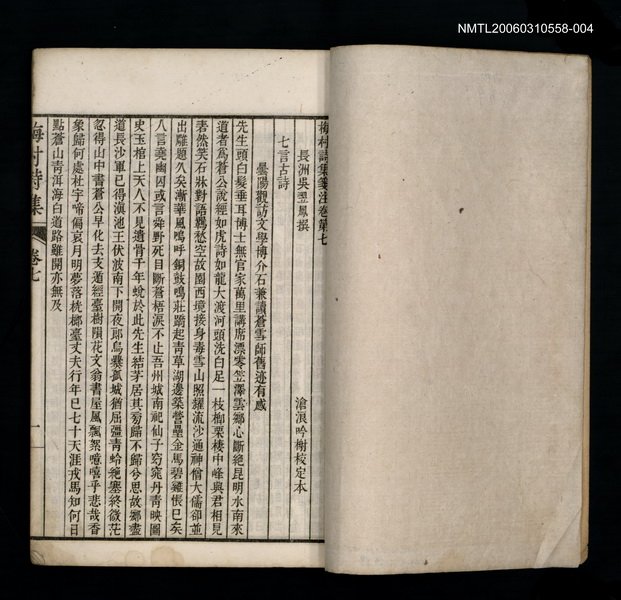 NMTL20060310558-004
梅村詩集箋注卷第七
長洲吳翌鳳撰 滄浪吟榭校定本
七言古詩
曇陽觀訪文學博介石兼讀蒼雪師舊迹有感
先生頭白髮垂耳博士無官家萬里講席漂零笠澤雲鄉心斷絕昆明水南來
道者為蒼公說經如虎詩如龍大渡河頭洗白足一枝柳栗棲中峰與君相見
砉然笑石牀對語羈愁空故園西境接身毒雪山照耀流沙通神僧大儒卻並
出雕題久矣漸華風鳴呼銅鼓鳴莊蹻起青草湖邊築營壘金馬碧雞悵已矣
人言堯幽囚或言舜野死目斷蒼梧淚不止吾州城南祠仙子窈窕丹青映圖
史玉棺上天人不見遺骨千年蛻於此先生結茅居其旁歸不歸兮思故鄉盡
道長沙軍已得滇池王伏波南下開夜郎烏爨孤城猶屈彊青蛉絕塞終微茫
忽得山中書蒼公早化去支遁經臺樹隕花文翁書屋風飄絮噫嘻乎悲哉香
象歸何處杜宇啼偏哀月明夢落桄榔臺丈夫行年已七十天涯戎馬知何日
點蒼山青洱海白道路雖開亦無及
梅村詩集 卷七 一